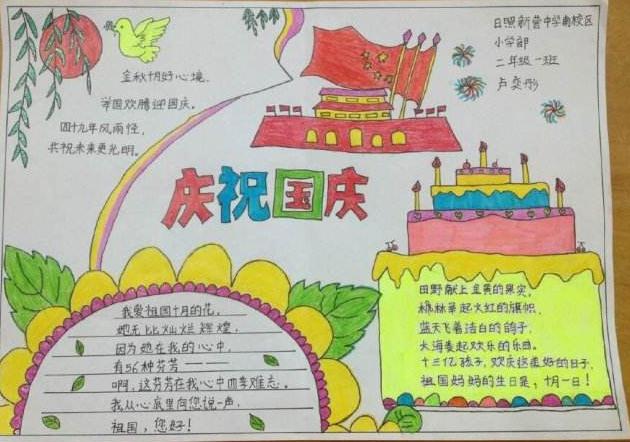 日照新营中学南校区
小学部
二年级一班
卢奕彤
金秋十月好心境,
举国欢腾迎国庆。
四十九年风雨怪,
共祝未来更光明。
庆祝国庆
我爱祖国十月的花,
她无比灿烂辉煌,
因为她在我的心中,
有56种芬芳——
啊,这芬芳在我心中四季难忘。
我从心底里向您说一声,
祖国,您好!
田野献上金黄的果实,
枫林举起火红的旗帜,
蓝天飞着洁白的鸽子,
大海奏起欢乐的乐曲。
十三亿孩子,欢庆这美好的日子,
祖国妈妈的生日是,十月一日!